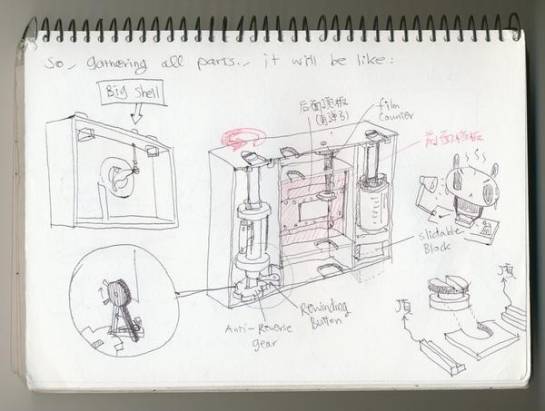 So, gathering all parts... it will be like:
Big Shell
后面
film
counter
前面
slidable
Block
Rewinding
Button
Anti-Reverse
gear
顶
顶